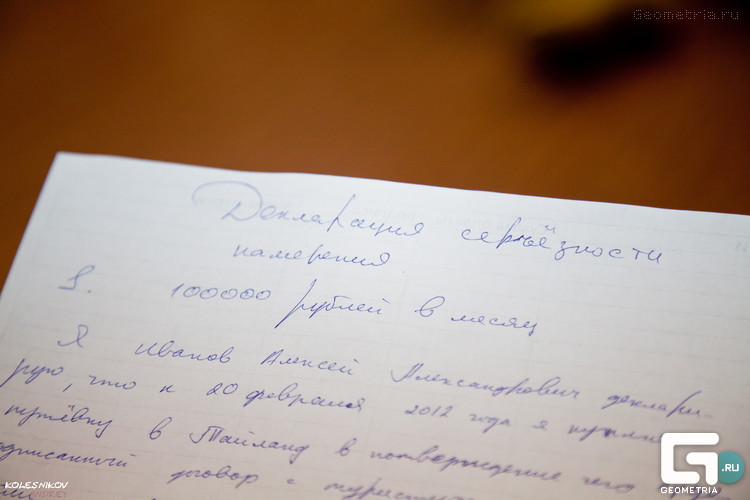 Geometria.ru
Декларация серьёзности
намерения
1. 100000 рублей в месяц
Я Иванов Алексей Александрович деклари-
рую, что к 20 февраля 2012 года я купил
путёвку в Тайланд в потверждение чего
договор с
KOLESNIKOV
ANDREY
G .ru
GEOMETRIA